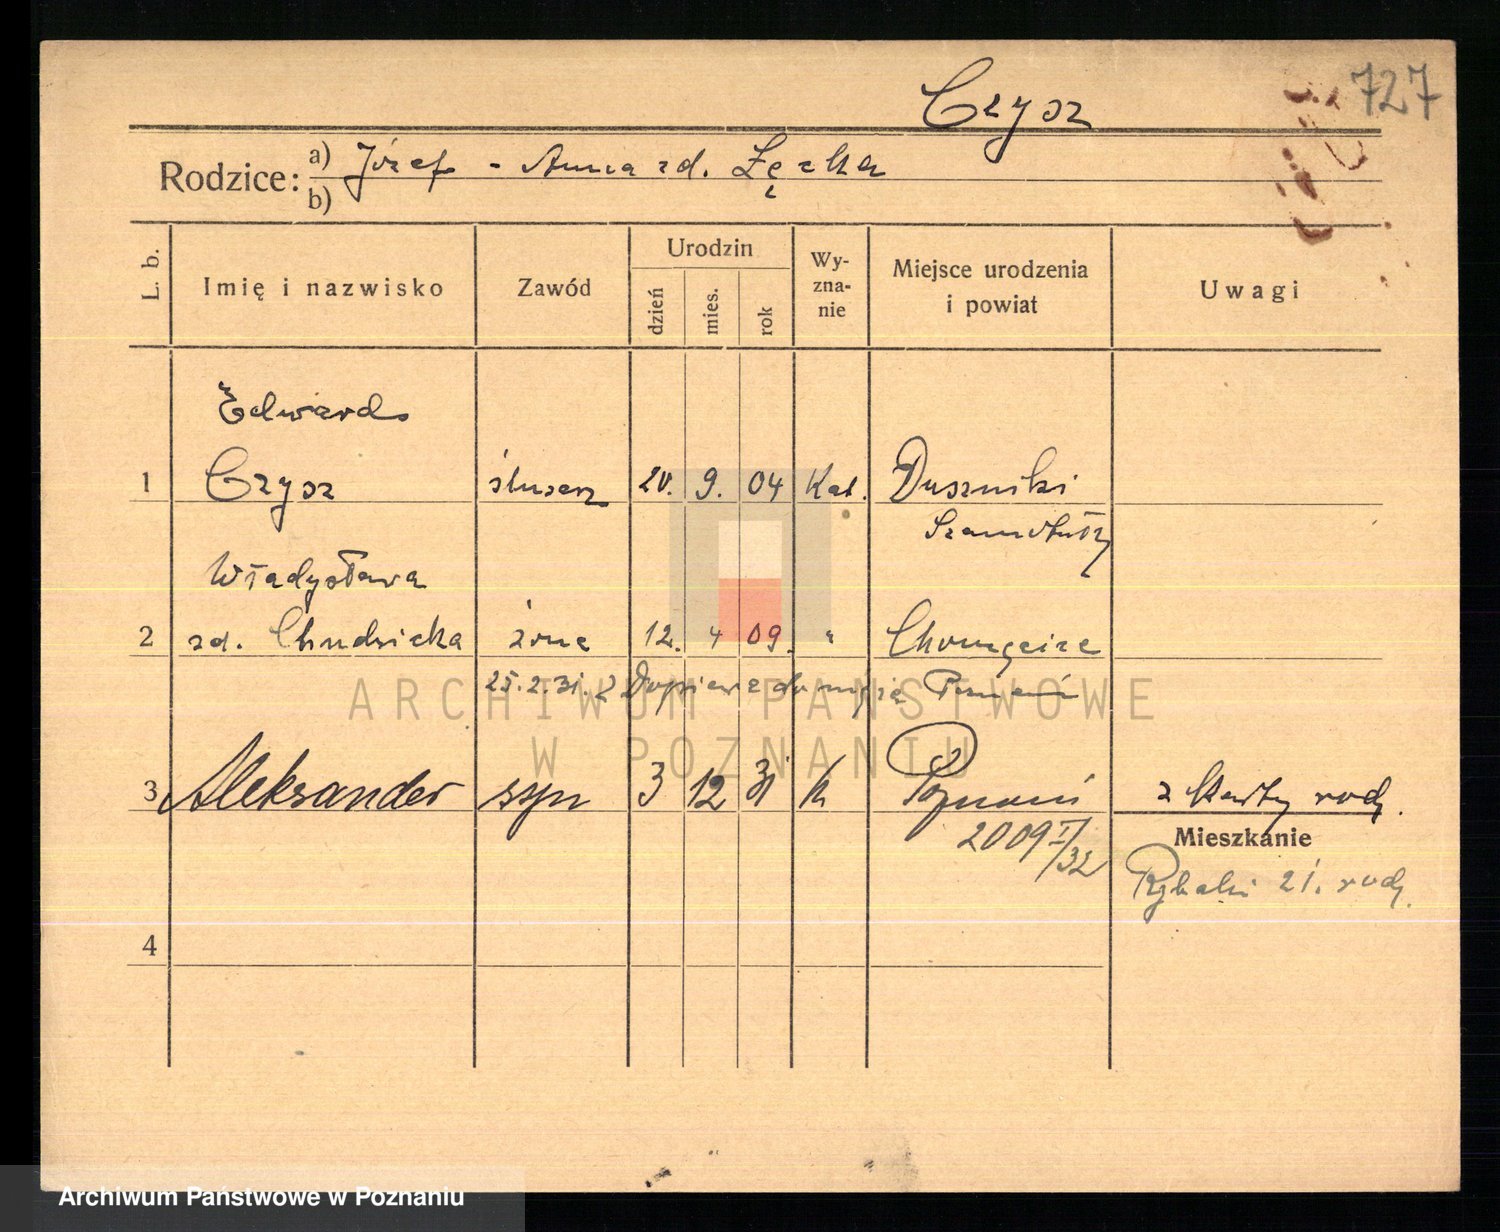 727
Czysz
Rodzice: a) Józef - Anna zd. Łęcka
b)
L. b. Imię i nazwisko Zawód Urodzin dzień mies. rok Wyznanie Miejsce urodzenia i powiat Uwagi
Edward
1 Czysz ślusarz 20. 9. 04 Kat. Duszniki
Szamotuły
Władysława
2 zd. Chudzicka żona 12. 4 09. " Chomęcice
25.2.31. Poznań
ARCHIWUM PAŃSTWOWE
W POZNANIU
3 Aleksander syn 3 12 31 k Poznań z karty rodz.
2009 I/32
Mieszkanie
Rybaki 21. rodz.
4
Archiwum Państwowe w Poznaniu